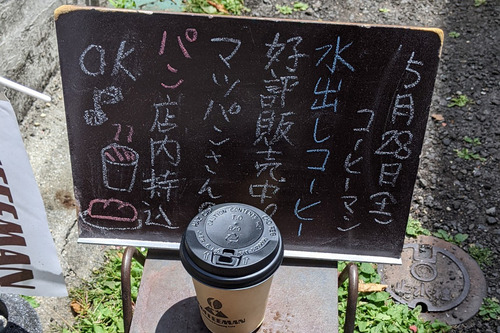 5月28日土
コーヒーマン
水出しコーヒー
好評販売中
マツパンさんの
パン店内持込
OK♪
CAUTION CONTENTS HOT